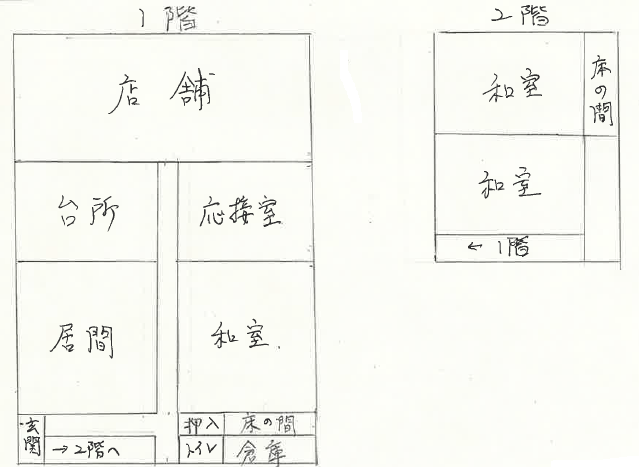 1階
店舗
台所
応接室
居間
和室
玄関
→2階へ
押入
床の間
トイレ
倉庫
2階
和室
床の間
和室
←1階